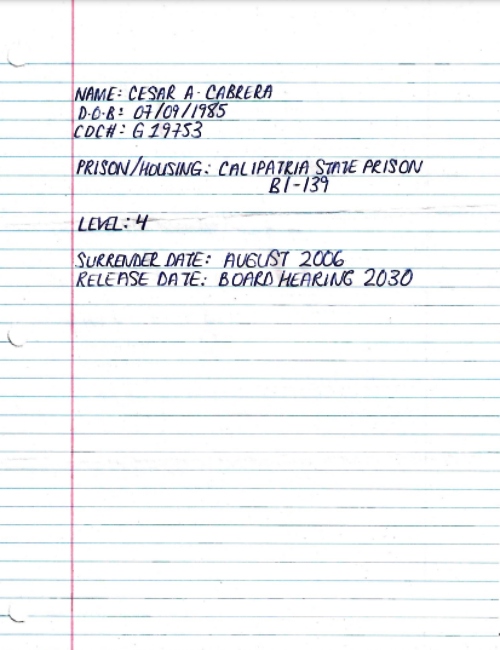 NAME: CESAR A. CABRERA
D.O.B: 07/09/1985
CDC#: G19753
PRISON/HOUSING: CALIPATRIA STATE PRISON
B1-139
LEVEL: 4
SURRENDER DATE: AUGUST 2006
RELEASE DATE: BOARD HEARING 2030